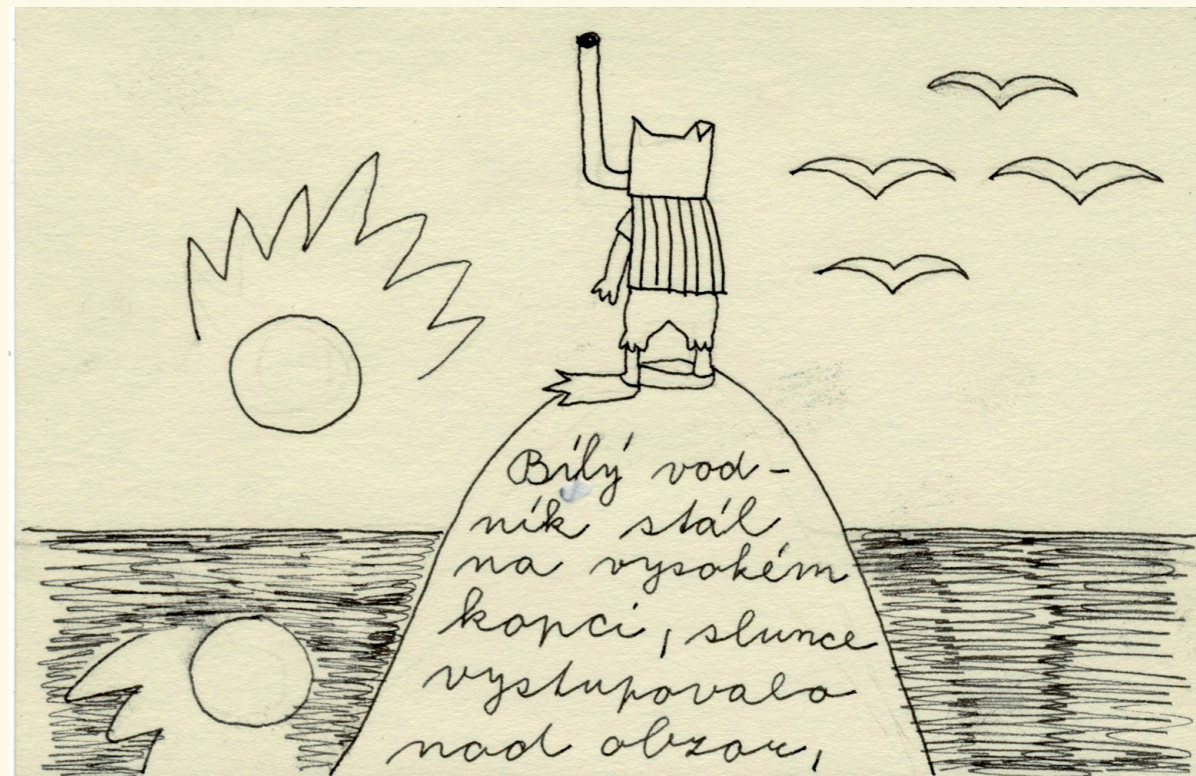 Bílý vod-
ník stál
na vysokém
kopci, slunce
vystupovalo
nad obzor,